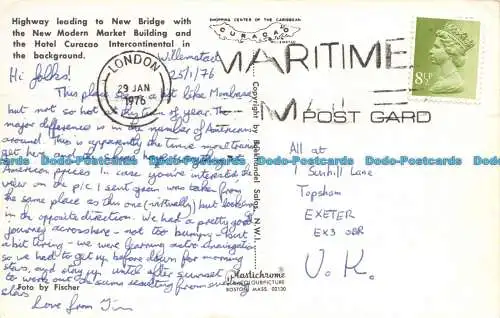 Highway leading to New Bridge with
the New Modern Market Building and
the Hotel Curacao Intercontinental in
the background.
SHOPPING CENTER OF THE CARIBBEAN
CURACAO
Willemstad
25/1/76
Hi folks!
This place is a bit like Mombasa
but not so hot at this time of year. The
major difference is in the number of Americans
around. This is apparently the time most
get here and
American prices. In case you're interested the
view on the p/c I sent was taken from
the same place as this one (virtually) but looking
in the opposite direction. We had a pretty good
journey across here - not too bumpy - but
a bit tiring - we were learning astro navigation
so we had to get up before dawn for morning
stars, and stay up until after sunset
to work out the sums resulting from evening
stars
Love from Tim
Photo by Fischer
Copyright by Boekhandel Salas, N.W.I.
Plastichrome
COLOURPICTURE
BOSTON, MASS. 02130
LONDON
29 JAN
1976
MARITIME
MAIL
8½P
POST CARD
All at
1 Sunhill Lane
Topsham
EXETER
EX3 0BR
U.K.
Dodo-Postcards